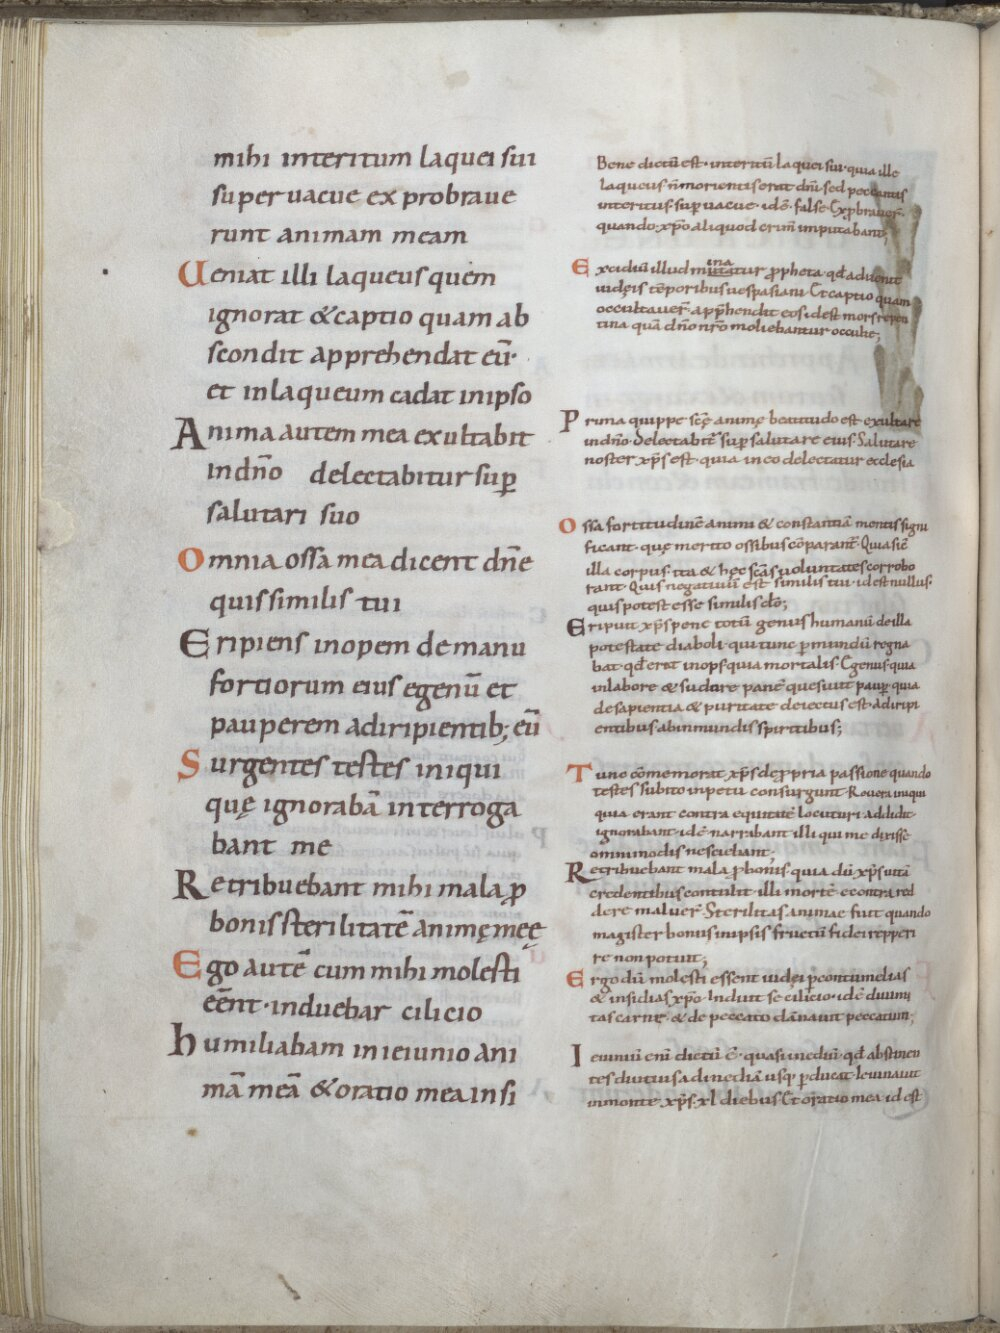 mihi interitum laquei sui
super vacue exprobraue
runt animam meam
Ueniat illi laqueus quem
ignorat & captio quam ab
scondit apprehendat eū·
et inlaqueum cadat inipso
Anima autem mea exultabit
indn̄o delectabitur sup̄
salutari suo
Omnia ossa mea dicent dn̄e
quis similis tui
Eripiens inopem de manu
fortiorum eius egenū et
pauperem adiripientib; eū
Surgentes testes iniqui
quę ignorabā interroga
bant me
Retribuebant mihi mala p̄
bonis sterilitatē animę meę
Ego autē cum mihi molesti
eēnt· induebar cilicio
humiliabam inieiunio ani
mā meā & oratio mea insi
Bene dictū est· interitū laquei sui· quia ille
laqueus n̄ morientis erat dn̄i sed peccantis
interitus· sup̄ vacue· idē· false· Exp̄braver̄
quando xp̄o aliquod crim̄ imputabant;
Excidiū illud minatur p̄pheta· qd̄ advenit
iudęis tēporibus vespasiani· Et captio quam
occultaver̄· app̄hendit eos· id est mors repen
tina quā dn̄o nr̄o moliebantur occulte;
Prima quippe scē animę beatitudo est exultare
indn̄o· delectabit̄ sup̄ salutare eius· Salutare
noster xp̄s est· quia in eo delectatur ecclesia
Ossa fortitudinē animi & constantiā mentis signi
ficant· quę merito ossibus cōparant̄· Quia siē
illa corpus· ita & hęc scās voluntates corrobo
rant· Quis negativū est similis tui· id est nullus·
quis potest esse similis dō;
Eripuit xp̄s pene totū genus humanū de illa
potestate diaboli· qui tunc p̄ mundū regna
bat· qd̄ erat inops· quia mortalis· Egenus· quia
in labore & sudore panē quesivit· paup̄· quia
de sapientia & puritate deiectus est· A diripi
entibus· ab inmundis spiritibus;
Tunc cōmemorat xp̄s de p̄pria passione· quando
testes subito inpetu consurgunt· Revera iniqui
quia erant contra equitatē locuturi· Addidit
ignorabant· idē· narrabant illi qui me dixisse
omnimodis nesciebant;
Retribuebant mala p̄ bonis· quia dū xp̄s vitā
credentibus contulit· illi mortē· econtra red
dere maluer̄· Sterilitas animae fuit quando
magister bonus in ipsis fructū fidei repperi
re non potuit;
Ergo dū molesti essent iudei p̄ contumelias
& insidias xp̄o· Induit se cilicio· idē divini
tas carne· & de peccato dānavit peccatum;
Ieiuniū enī dictū ē· quasi inediū· qd̄ abstinen
tes diutius ad inediā usq; p̄ducat· Ieiunavit
in monte· xp̄s· xl· diebus· Et oratio mea id est